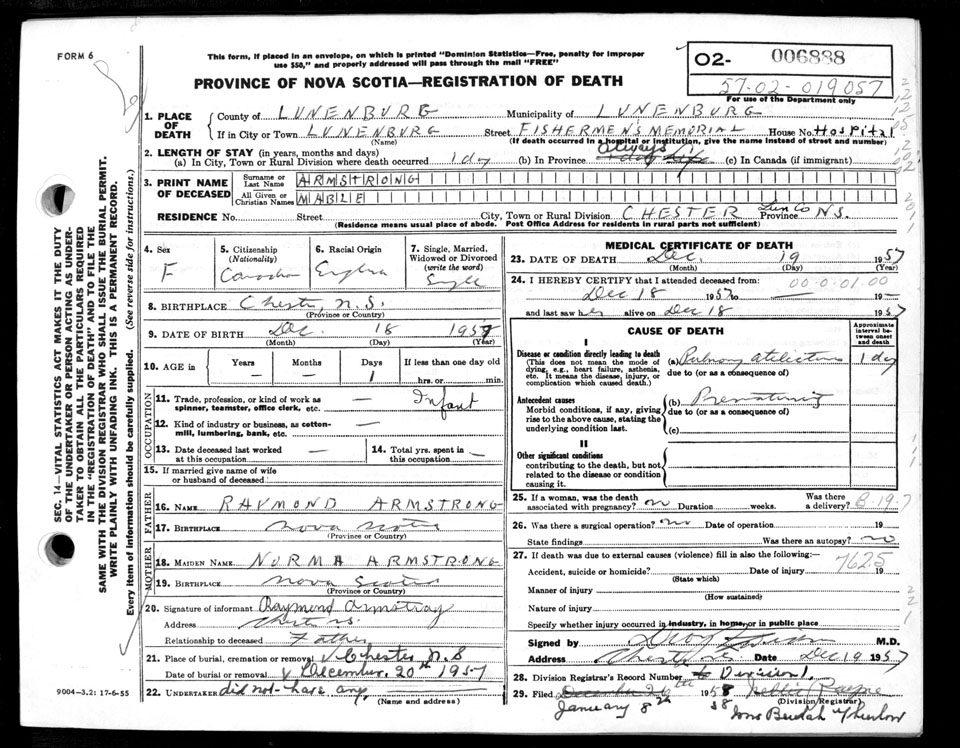 FORM 6
This form, if placed in an envelope, on which is printed "Dominion Statistics—Free, penalty for improper
use $50," and properly addressed will pass through the mail "FREE"
PROVINCE OF NOVA SCOTIA—REGISTRATION OF DEATH
O2- 006888
57-02-019057
For use of the Department only
1. PLACE OF DEATH County of LUNENBURG Municipality of LUNENBURG
If in City or Town LUNENBURG Street FISHERMEN'S MEMORIAL House No. Hospital
(Name) (If death occurred in a hospital or institution, give the name instead of street and number)
2. LENGTH OF STAY (in years, months and days) always
(a) In City, Town or Rural Division where death occurred 1 day (b) In Province 1 day life (c) In Canada (if immigrant)
3. PRINT NAME OF DECEASED Surname or Last Name ARMSTRONG
All Given or Christian Names MABLE
RESIDENCE No. Street City, Town or Rural Division CHESTER Lun Co Province N.S.
(Residence means usual place of abode. Post Office Address for residents in rural parts not sufficient)
4. Sex F
5. Citizenship (Nationality) Canadian
6. Racial Origin
7. Single, Married, Widowed or Divorced (write the word) Single
8. BIRTHPLACE Chester N.S.
(Province or Country)
9. DATE OF BIRTH Dec. 18 1957
(Month) (Day) (Year)
10. AGE in Years — Months — Days 1 If less than one day old hrs. or min.
OCCUPATION
11. Trade, profession, or kind of work as spinner, teamster, office clerk, etc. — Infant
12. Kind of industry or business, as cotton-mill, lumbering, bank, etc. —
13. Date deceased last worked at this occupation —
14. Total yrs. spent in this occupation —
15. If married give name of wife or husband of deceased
FATHER
16. NAME RAYMOND ARMSTRONG
17. BIRTHPLACE Nova Scotia
(Province or Country)
MOTHER
18. MAIDEN NAME NORMA ARMSTRONG
19. BIRTHPLACE Nova Scotia
(Province or Country)
20. Signature of informant Raymond Armstrong
Address Chester N.S.
Relationship to deceased Father
21. Place of burial, cremation or removal Chester N.S
Date of burial or removal December 20th 1957
22. UNDERTAKER did not have any
(Name and address)
MEDICAL CERTIFICATE OF DEATH
23. DATE OF DEATH Dec. 19 1957
(Month) (Day) (Year)
24. I HEREBY CERTIFY that I attended deceased from: 00.0.01.00
Dec 18 1957 to — 19—
and last saw her alive on Dec 18 1957
CAUSE OF DEATH
Approximate interval between onset and death
I
Disease or condition directly leading to death
(This does not mean the mode of dying, e.g., heart failure, asthenia, etc. It means the disease, injury, or complication which caused death.)
(a) Pulmonary Atelectasis 1 day
due to (or as a consequence of)
Antecedent causes
Morbid conditions, if any, giving rise to the above cause, stating the underlying condition last.
(b) Prematurity
due to (or as a consequence of)
(c)
II
Other significant conditions
contributing to the death, but not related to the disease or condition causing it.
25. If a woman, was the death associated with pregnancy? no Duration weeks. Was there a delivery? 8-19-7
26. Was there a surgical operation? no Date of operation 19
State findings Was there an autopsy? no
27. If death was due to external causes (violence) fill in also the following:— 762.5
Accident, suicide or homicide? Date of injury 19
(State which)
Manner of injury
(How sustained)
Nature of injury
Specify whether injury occurred in industry, in home, or in public place
Signed by M.D.
Address Chester N.S. Date Dec 19 1957
28. Division Registrar's Record Number
29. Filed December 26th 1958
(Division Registrar)
January 8th 58 Beulah
SEC. 14—VITAL STATISTICS ACT MAKES IT THE DUTY
OF THE UNDERTAKER OR PERSON ACTING AS UNDER-
TAKER TO OBTAIN ALL THE PARTICULARS REQUIRED
IN THE "REGISTRATION OF DEATH" AND TO FILE THE
SAME WITH THE DIVISION REGISTRAR WHO SHALL ISSUE THE BURIAL PERMIT.
WRITE PLAINLY WITH UNFADING INK. THIS IS A PERMANENT RECORD.
Every item of information should be carefully supplied. (See reverse side for instructions.)
9004-3.2: 17-6-55